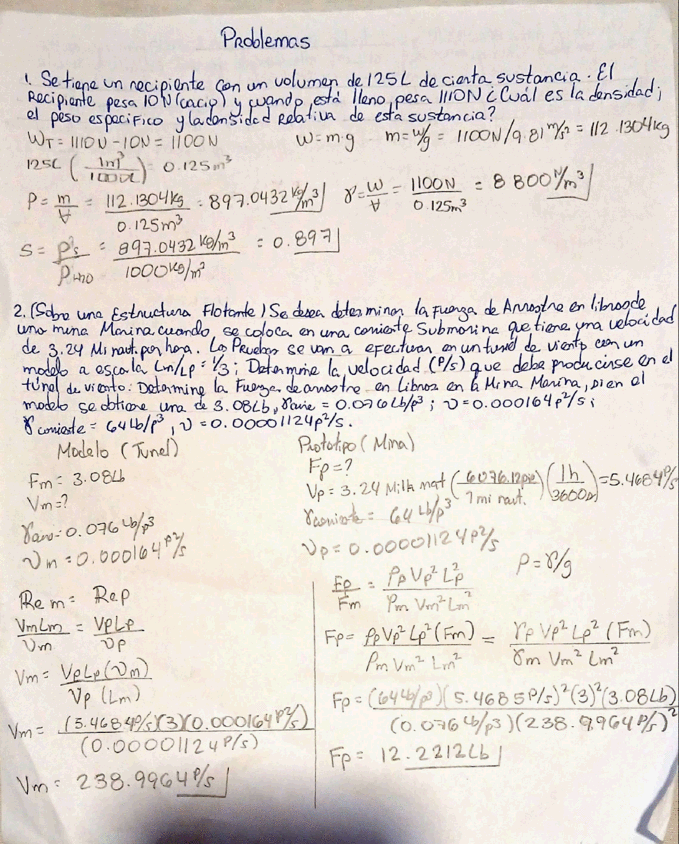 Problemas
1. Se tiene un recipiente con un volumen de 125L de cierta sustancia. El
Recipiente pesa 10N (vacio) y cuando está lleno, pesa 1110N ¿Cuál es la densidad;
el peso especifico y la densidad Relativa de esta sustancia?
WT = 1110N - 10N = 1100N   W = m·g   m = W/g = 1100N/9.81 m/s² = 112.1304kg
125L (1m³/1000L) = 0.125m³
ρ = m/V = 112.1304kg/0.125m³ = 897.0432 kg/m³   γ = W/V = 1100N/0.125m³ = 8 800 N/m³
S = ρs/ρH2O = 897.0432 kg/m³/1000kg/m³ = 0.897
2. (Sobre una Estructura Flotante) Se desea determinar la Fuerza de Arrastre en libras de
una mina Marina cuando, se coloca en una corriente Submarina que tiene una velocidad
de 3.24 Mi naut. por hora. Las Pruebas se van a efectuar en un tunel de viento con un
modelo a escala Lm/Lp = 1/3; Determine la velocidad (P/s) que debe producirse en el
túnel de viento. Determine la Fuerza de arrastre en Libras en la Mina Marina, si en el
modelo se obtiene una de 3.08Lb, γaire = 0.076Lb/p³; ν = 0.000164p²/s;
γcorriente = 64Lb/p³, ν = 0.00001124p²/s.
Modelo (Tunel)
Fm = 3.08Lb
Vm = ?
γaire = 0.076 Lb/p³
νm = 0.000164 p²/s
Rem = Rep
VmLm/νm = VpLp/νp
Vm = VpLp(νm)/νp(Lm)
Vm = (5.4684P/s)(3)(0.000164P²/s)/(0.00001124P/s)
Vm = 238.9964P/s
Prototipo (Mina)
Fp = ?
Vp = 3.24 Mi/h naut (6076.12pie/1 mi naut.)(1h/3600s) = 5.4684P/s
γcorriente = 64 Lb/p³
νp = 0.00001124p²/s
ρ = γ/g
Fp/Fm = ρp Vp² Lp²/ρm Vm² Lm²
Fp = ρp Vp² Lp² (Fm)/ρm Vm² Lm² = γp Vp² Lp² (Fm)/γm Vm² Lm²
Fp = (64Lb/p³)(5.4685P/s)²(3)²(3.08Lb)/(0.076Lb/p³)(238.9964P/s)²
Fp = 12.2212Lb